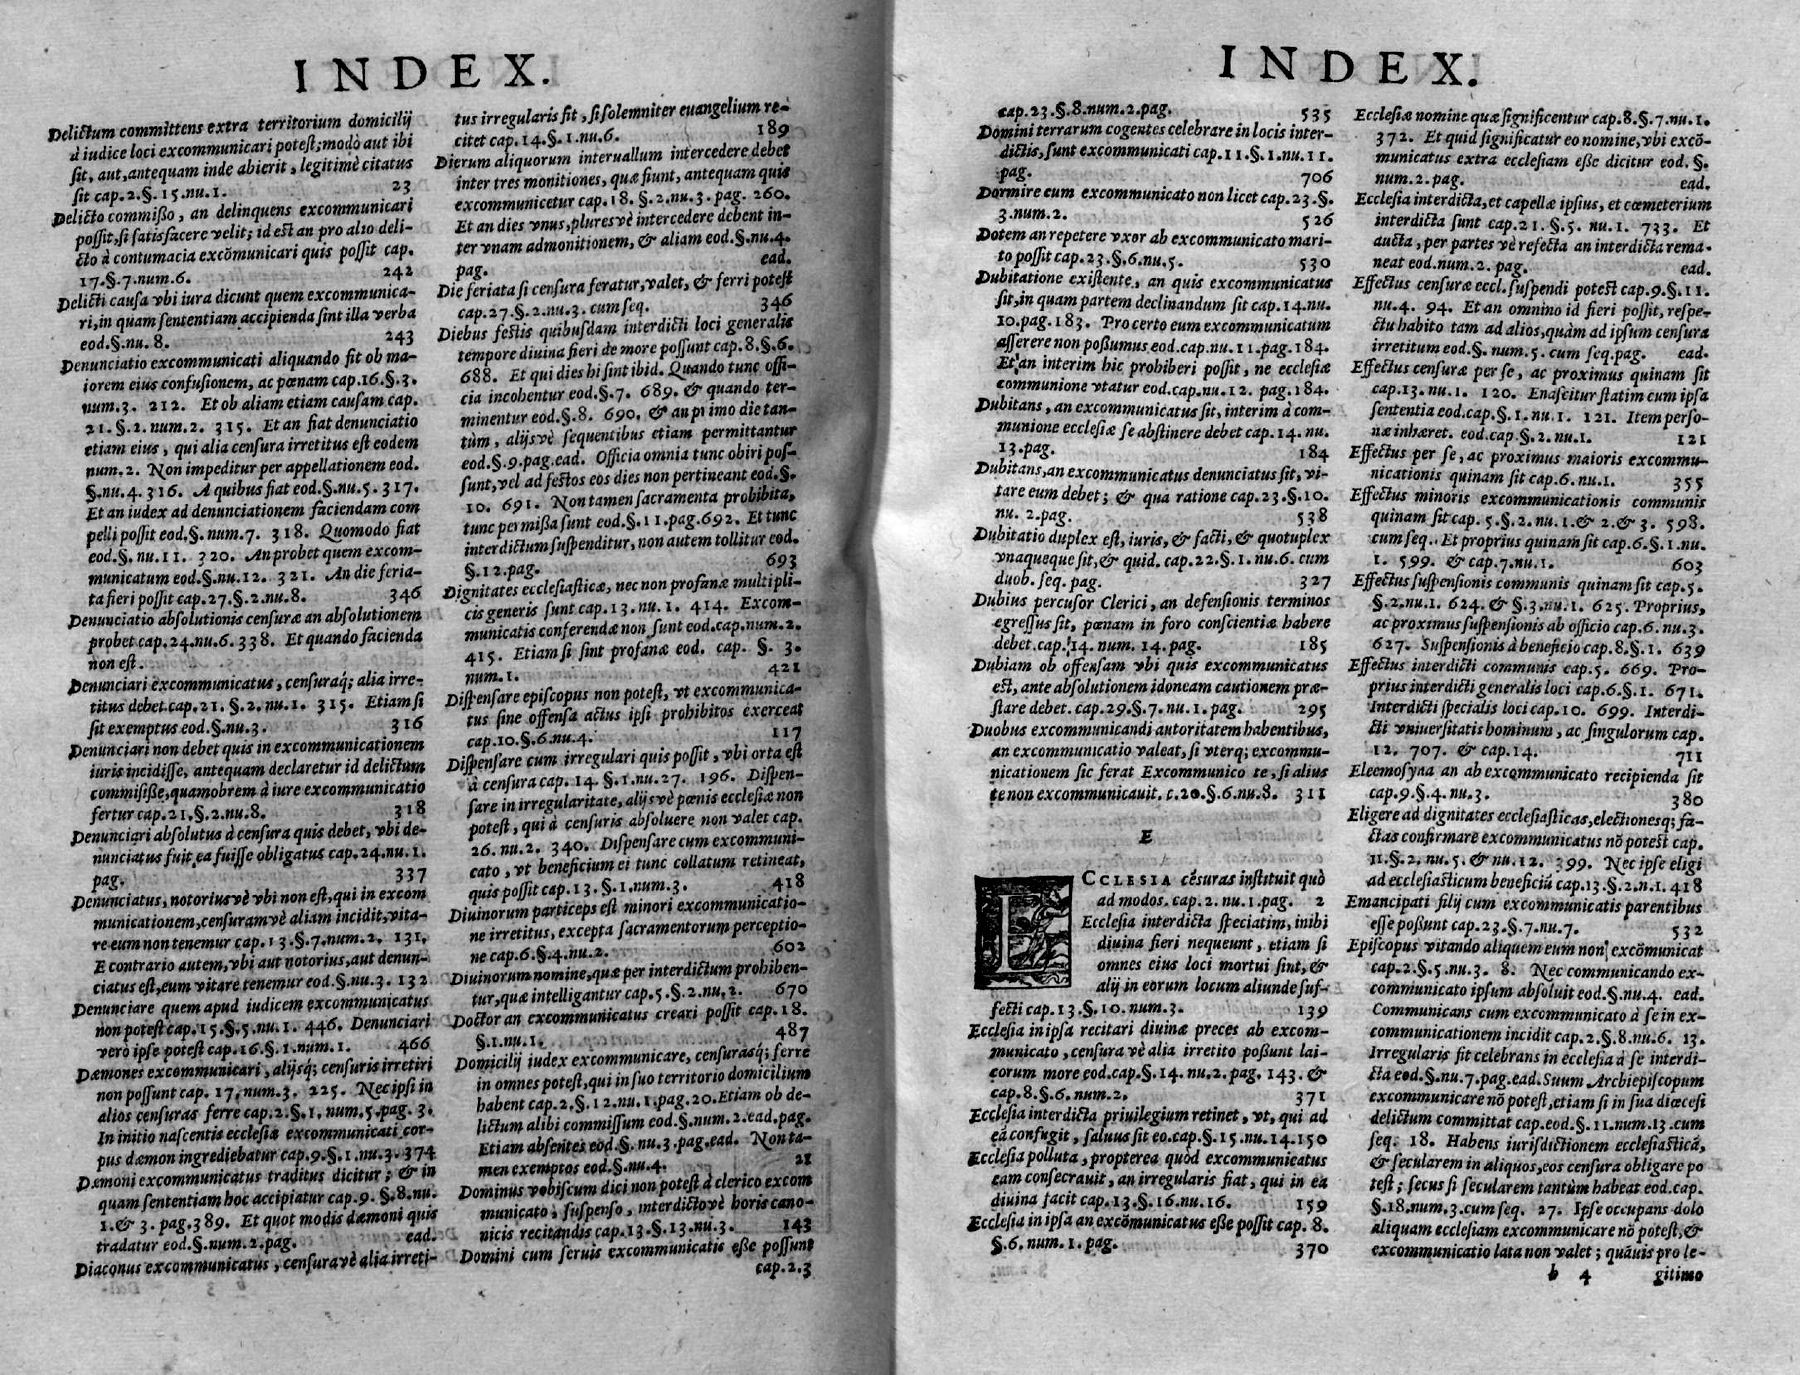 INDEX.
Delictum committens extra territorium domicilij
à iudice loci excommunicari potest; modò aut ibi
sit, aut, antequam inde abierit, legitimè citatus
sit cap. 2. §. 15. nu. 1. 23
Delicto commisso, an delinquens excommunicari
possit, si satisfacere velit; id est an pro alio deli-
cto à contumacia excōmunicari quis possit cap.
17. §. 7. num. 6. 242
Delicti causa vbi iura dicunt quem excommunica-
ri, in quam sententiam accipienda sint illa verba
eod. §. nu. 8. 243
Denunciatio excommunicati aliquando fit ob ma-
iorem eius confusionem, ac pœnam cap. 16. §. 3.
num. 3. 212. Et ob aliam etiam causam cap.
21. §. 2. num. 2. 315. Et an fiat denunciatio
etiam eius, qui alia censura irretitus est eodem
num. 2. Non impeditur per appellationem eod.
§. nu. 4. 316. A quibus fiat eod. §. nu. 5. 317.
Et an iudex ad denunciationem faciendam com
pelli possit eod. §. num. 7. 318. Quomodo fiat
eod. §. nu. 11. 320. An probet quem excom-
municatum eod. §. nu. 12. 321. An die feria-
ta fieri possit cap. 27. §. 2. nu. 8. 346
Denunciatio absolutionis censuræ an absolutionem
probet cap. 24. nu. 6. 338. Et quando facienda
non est.
Denunciari excommunicatus, censuraq́; alia irre-
titus debet cap. 21. §. 2. nu. 1. 315. Etiam si
sit exemptus eod. §. nu. 3. 316
Denunciari non debet quis in excommunicationem
iuris incidisse, antequam declaretur id delictum
commisisse, quamobrem à iure excommunicatio
fertur cap. 21. §. 2. nu. 8. 318
Denunciari absolutus à censura quis debet, vbi de-
nunciatus fuit ea fuisse obligatus cap. 24. nu. 1.
pag. 337
Denunciatus, notoriusvè vbi non est, qui in excom
municationem, censuramvè aliam incidit, vita-
re eum non tenemur cap. 13. §. 7. num. 2. 131.
E contrario autem, vbi aut notorius, aut denun-
ciatus est, eum vitare tenemur eod. §. nu. 3. 132
Denunciare quem apud iudicem excommunicatus
non potest cap. 15. §. 5. nu. 1. 446. Denunciari
verò ipse potest cap. 16. §. 1. num. 1. 466
Dæmones excommunicari, alijsq́; censuris irretiri
non possunt cap. 17. num. 3. 225. Nec ipsi in
alios censuras ferre cap. 2. §. 1. num. 5. pag. 3.
In initio nascentis ecclesiæ excommunicati cor-
pus dæmon ingrediebatur cap. 9. §. 1. nu. 3. 374
Dæmoni excommunicatus traditus dicitur; & in
quam sententiam hoc accipiatur cap. 9. §. 8. nu.
1. & 3. pag. 389. Et quot modis dæmoni quis
tradatur eod. §. num. 2. pag. ead.
Diaconus excommunicatus, censuravè alia irreti-
tus irregularis sit, si solemniter euangelium re-
citet cap. 14. §. 1. nu. 6. 189
Dierum aliquorum interuallum intercedere debet
inter tres monitiones, quæ fiunt, antequam quis
excommunicetur cap. 18. §. 2. nu. 3. pag. 260.
Et an dies vnus, pluresvè intercedere debent in-
ter vnam admonitionem, & aliam eod. §. nu. 4.
pag. ead.
Die feriata si censura feratur, valet, & ferri potest
cap. 27. §. 2. nu. 3. cum seq. 346
Diebus festis quibusdam interdicti loci generalis
tempore diuina fieri de more possunt cap. 8. §. 6.
688. Et qui dies hi sint ibid. Quando tunc offi-
cia incohentur eod. §. 7. 689. & quando ter-
minentur eod. §. 8. 690. & an primo die tan-
tùm, alijsvè sequentibus etiam permittantur
eod. §. 9. pag. ead. Officia omnia tunc obiri pos-
sunt, vel ad festos eos dies non pertineant eod. §.
10. 691. Non tamen sacramenta prohibita,
tunc permissa sunt eod. §. 11. pag. 692. Et tunc
interdictum suspenditur, non autem tollitur eod.
§. 12. pag. 693
Dignitates ecclesiasticæ, nec non profanæ multipli-
cis generis sunt cap. 13. nu. 1. 414. Excom-
municatis conferendæ non sunt eod. cap. num. 2.
415. Etiam si sint profanæ eod. cap. §. 3.
num. 1. 421
Dispensare episcopus non potest, vt excommunica-
tus sine offensa actus ipsi prohibitos exerceat
cap. 10. §. 6. nu. 4. 117
Dispensare cum irregulari quis possit, vbi orta est
à censura cap. 14. §. 1. nu. 27. 196. Dispen-
sare in irregularitate, alijsvè pœnis ecclesiæ non
potest, qui à censuris absoluere non valet cap.
26. nu. 2. 340. Dispensare cum excommuni-
cato, vt beneficium ei tunc collatum retineat,
quis possit cap. 13. §. 1. num. 3. 418
Diuinorum particeps est minori excommunicatio-
ne irretitus, excepta sacramentorum perceptio-
ne cap. 6. §. 4. nu. 2. 602
Diuinorum nomine, quæ per interdictum prohiben-
tur, quæ intelligantur cap. 5. §. 2. nu. 2. 670
Doctor an excommunicatus creari possit cap. 18.
§. 1. nu. 1. 487
Domicilij iudex excommunicare, censurasq́; ferre
in omnes potest, qui in suo territorio domicilium
habent cap. 2. §. 12. nu. 1. pag. 20. Etiam ob de-
lictum alibi commissum eod. §. num. 2. ead. pag.
Etiam absentes eod. §. nu. 3. pag. ead. Non ta-
men exemptos eod. §. nu. 4. 21
Dominus vobiscum dici non potest à clerico excom
municato, suspenso, interdictovè horis cano-
nicis recitandis cap. 13. §. 13. nu. 3. 143
Domini cum seruis excommunicatis esse possunt
cap. 2.3
INDEX.
cap. 23. §. 8. num. 2. pag. 535
Domini terrarum cogentes celebrare in locis inter-
dictis, sunt excommunicati cap. 11. §. 1. nu. 11.
pag. 706
Dormire cum excommunicato non licet cap. 23. §.
3. num. 2. 526
Dotem an repetere vxor ab excommunicato mari-
to possit cap. 23. §. 6. nu. 5. 530
Dubitatione existente, an quis excommunicatus
sit, in quam partem declinandum sit cap. 14. nu.
10. pag. 183. Pro certo eum excommunicatum
asserere non possumus eod. cap. nu. 11. pag. 184.
Et an interim hic prohiberi possit, ne ecclesiæ
communione vtatur eod. cap. nu. 12. pag. 184.
Dubitans, an excommunicatus sit, interim à com-
munione ecclesiæ se abstinere debet cap. 14. nu.
13. pag. 184
Dubitans, an excommunicatus denunciatus sit, vi-
tare eum debet; & qua ratione cap. 23. §. 10.
nu. 2. pag. 538
Dubitatio duplex est, iuris, & facti, & quotuplex
vnaqueque sit, & quid. cap. 22. §. 1. nu. 6. cum
duob. seq. pag. 327
Dubius percusor Clerici, an defensionis terminos
egressus sit, pœnam in foro conscientiæ habere
debet. cap. 14. num. 14. pag. 185
Dubiam ob offensam vbi quis excommunicatus
est, ante absolutionem idoneam cautionem præ-
stare debet. cap. 29. §. 7. nu. 1. pag. 295
Duobus excommunicandi autoritatem habentibus,
an excommunicatio valeat, si vterq; excommu-
nicationem sic ferat Excommunico te, si alius
te non excommunicauit. c. 20. §. 6. nu. 8. 311
E
ECCLESIA cēsuras instituit quò
ad modos. cap. 2. nu. 1. pag. 2
Ecclesia interdicta speciatim, inibi
diuina fieri nequeunt, etiam si
omnes eius loci mortui sint, &
alij in eorum locum aliunde suf-
fecti cap. 13. §. 10. num. 3. 139
Ecclesia in ipsa recitari diuinæ preces ab excom-
municato, censura vè alia irretito possunt lai-
corum more eod. cap. §. 14. nu. 2. pag. 143. &
cap. 8. §. 6. num. 2. 371
Ecclesia interdicta priuilegium retinet, vt, qui ad
eā confugit, saluus sit eo. cap. §. 15. nu. 14. 150
Ecclesia polluta, propterea quòd excommunicatus
eam consecrauit, an irregularis fiat, qui in ea
diuina facit cap. 13. §. 16. nu. 16. 159
Ecclesia in ipsa an excōmunicatus esse possit cap. 8.
§. 6. num. 1. pag. 370
Ecclesiæ nomine quæ significentur cap. 8. §. 7. nu. 1.
372. Et quid significatur eo nomine, vbi excō-
municatus extra ecclesiam esse dicitur eod. §.
num. 2. pag. ead.
Ecclesia interdicta, et capellæ ipsius, et cœmeterium
interdicta sunt cap. 21. §. 5. nu. 1. 733. Et
aucta, per partes vè refecta an interdicta rema-
neat eod. num. 2. pag. ead.
Effectus censuræ eccl. suspendi potest cap. 9. §. 11.
nu. 4. 94. Et an omnino id fieri possit, respe-
ctu habito tam ad alios, quàm ad ipsum censura
irretitum eod. §. num. 5. cum seq. pag. ead.
Effectus censuræ per se, ac proximus quinam sit
cap. 13. nu. 1. 120. Enascitur statim cum ipsa
sententia eod. cap. §. 1. nu. 1. 121. Item perso-
næ inhæret. eod. cap. §. 2. nu. 1. 121
Effectus per se, ac proximus maioris excommu-
nicationis quinam sit cap. 6. nu. 1. 355
Effectus minoris excommunicationis communis
quinam sit cap. 5. §. 2. nu. 1. & 2. & 3. 598.
cum seq. Et proprius quinam sit cap. 6. §. 1. nu.
1. 599. & cap. 7. nu. 1. 603
Effectus suspensionis communis quinam sit cap. 5.
§. 2. nu. 1. 624. & §. 3. nu. 1. 625. Proprius,
ac proximus suspensionis ab officio cap. 6. nu. 3.
627. Suspensionis à beneficio cap. 8. §. 1. 639
Effectus interdicti communis cap. 5. 669. Pro-
prius interdicti generalis loci cap. 6. §. 1. 671.
Interdicti specialis loci cap. 10. 699. Interdi-
cti vniuersitatis hominum, ac singulorum cap.
12. 707. & cap. 14. 711
Eleemosyna an ab excommunicato recipienda sit
cap. 9. §. 4. nu. 3. 380
Eligere ad dignitates ecclesiasticas, electionesq; fa-
ctas confirmare excommunicatus nō potest cap.
11. §. 2. nu. 5. & nu. 12. 399. Nec ipse eligi
ad ecclesiasticum beneficiū cap. 13. §. 2. n. 1. 418
Emancipati filij cum excommunicatis parentibus
esse possunt cap. 23. §. 7. nu. 7. 532
Episcopus vitando aliquem eum non excōmunicat
cap. 2. §. 5. nu. 3. 8. Nec communicando ex-
communicato ipsum absoluit eod. §. nu. 4. ead.
Communicans cum excommunicato à se in ex-
communicationem incidit cap. 2. §. 8. nu. 6. 13.
Irregularis fit celebrans in ecclesia à se interdi-
cta eod. §. nu. 7. pag. ead. Suum Archiepiscopum
excommunicare nō potest, etiam si in sua diœcesi
delictum committat cap. eod. §. 11. num. 13. cum
seq. 18. Habens iurisdictionem ecclesiasticā,
& secularem in aliquos, eos censura obligare po
test; secus si secularem tantùm habeat eod. cap.
§. 18. num. 3. cum seq. 27. Ipse occupans dolo
aliquam ecclesiam excommunicare nō potest, &
excommunicatio lata non valet; quāuis pro le-
b 4 gitimo